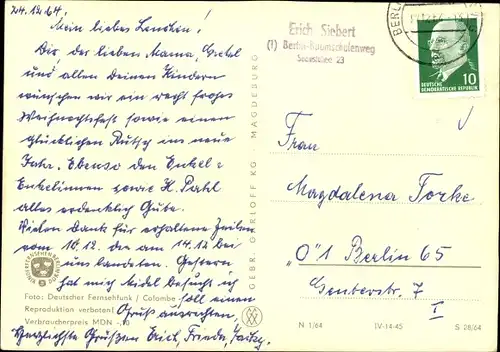 24.12.64.
Mein liebes Lenchen!
Dir, der lieben Mama, Gretel
und allen Deinen Kindern
wünschen wir ein recht frohes
Weihnachtsfest sowie einen
glücklichen Rutsch ins neue
Jahr. Ebenso den Enkel=
Enkelinnen sowie H. Pahl
alles erdenklich Gute.
Vielen Dank für erhaltene Zeilen
vom 10.12. die am 14.12 bei
uns landeten. Gestern
hat mich besucht ich
soll einen
Gruß ausrichten,
Herzlichste Grüßen Erich, Frieda,
Foto: Deutscher Fernsehfunk / Colombe
Reproduktion verboten!
Verbraucherpreis MDN -,
GEBR. GARLOFF KG · MAGDEBURG
Erich Siebert
(1) Berlin-Baumschulenweg
23
BERLIN
DEUTSCHE
DEMOKRATISCHE REPUBLIK
10
Frau
Magdalena Torke
"0" 1 Berlin 65
Genterstr. 7
I
N 1/64 IV-14-45 S 28/64